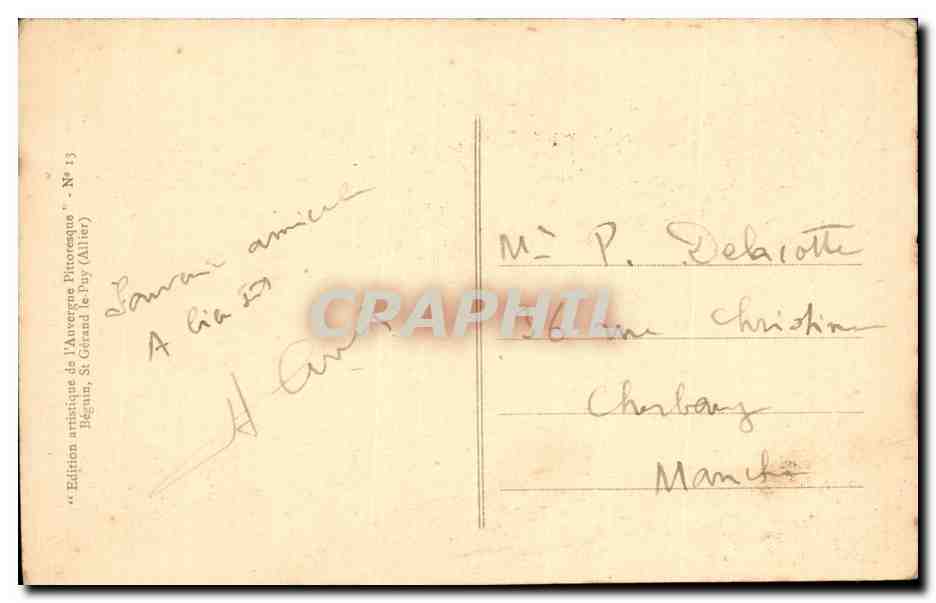 "Edition artistique de l'Auvergne Pittoresque" - Nº 13
Béguin, St Gérand-le-Puy (Allier)
Souvenir amical
A bientôt
H
CPAPHIL
Mr P. Delacotte
56 rue Christine
Cherbourg
Manche